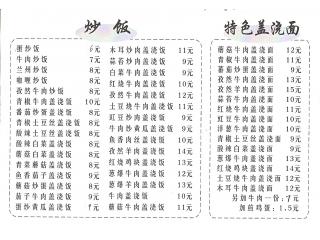 炒 饭
蛋炒饭 6元
牛肉炒饭 7元
兰州炒饭 8元
咖喱炒饭 8元
孜然牛肉炒饭 10元
青椒牛肉盖浇饭 10元
番茄炒蛋盖浇饭 8元
青椒土豆丝盖浇饭 8元
酸辣土豆丝盖浇饭 8元
酸辣白菜盖浇饭 9元
蘑菇白菜盖浇饭 9元
青菜蘑菇盖浇饭 9元
鱼香茄子盖浇饭 9元
蘑菇炒蛋盖浇饭 9元
茄子牛肉盖浇饭 9元
蛋炒黄瓜盖浇饭 9元
木耳炒肉盖浇饭 11元
蒜苔炒肉盖浇饭 9元
白菜牛肉盖浇饭 9元
红烧牛肉盖浇饭 9元
孜然羊肉盖浇饭 12元
土豆烧牛肉盖浇饭 11元
孜然牛肉盖浇饭 11元
红烧豆腐盖浇饭 9元
牛肉炒黄瓜盖浇饭 9元
鱼香肉丝盖浇饭 9元
蒜苔炒蛋盖浇饭 9元
红烧鸡块盖浇饭 11元
葱爆牛肉盖浇饭 11元
葱爆羊肉盖浇饭 13元
番茄牛肉盖浇饭 11元
蘑菇牛肉盖浇饭 11元
特色盖浇面
蘑菇牛肉盖浇面 12元
青椒牛肉盖浇面 11元
番茄炒蛋盖浇面 9元
红烧牛肉盖浇面 13元
蒜苔牛肉盖浇面 12元
孜然牛肉盖浇面 12元
土豆牛肉盖浇面 12元
青椒鸡蛋盖浇面 9元
红烧豆腐盖浇面 10元
洋葱牛肉盖浇面 10元
青椒土豆丝盖浇面 9元
孜然羊肉盖浇面 13元
葱爆牛肉盖浇面 12元
葱爆羊肉盖浇面 13元
红烧鸡块盖浇面 12元
土豆烧牛肉盖浇面 12元
木耳牛肉盖浇面 12元
另加牛肉一份：7元
加煎鸡蛋：1.5元